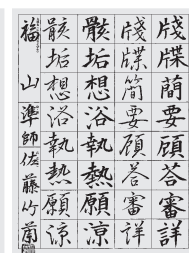 牋牒簡要顧答審詳
牋牒簡要顧答審詳
骸垢想浴執熱願涼
骸垢想浴執熱願涼
福山 準師 佐藤竹蘭